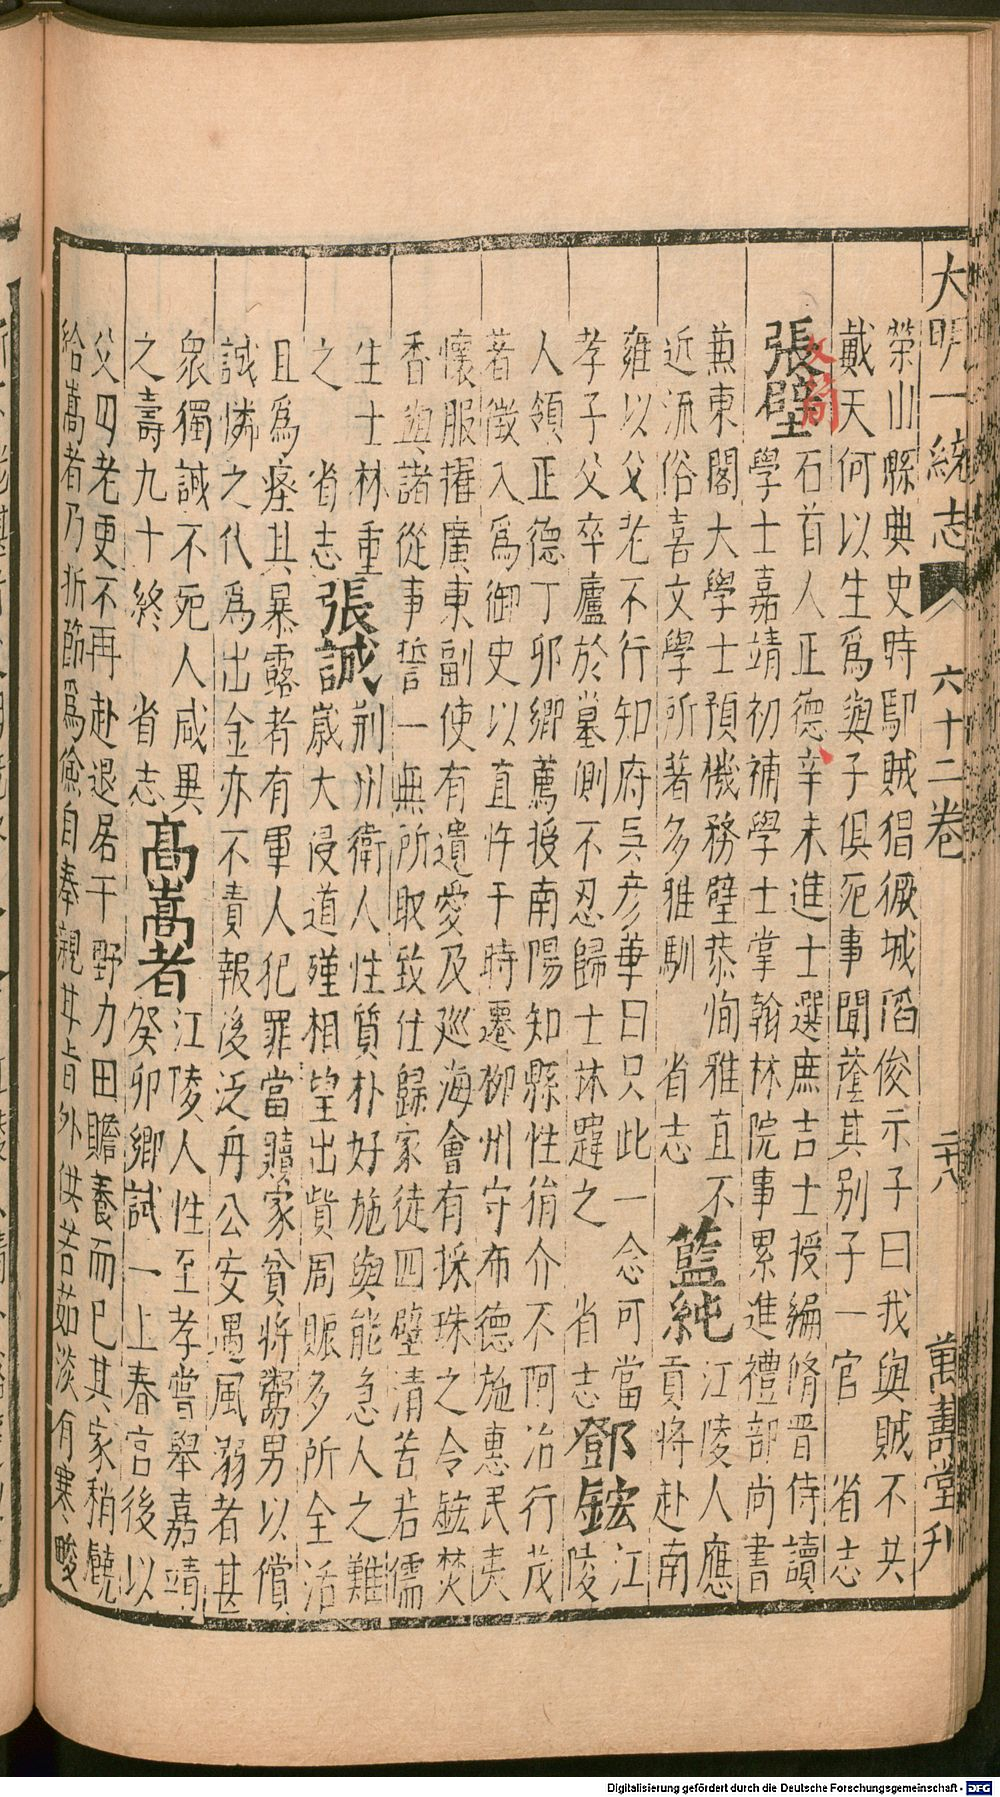 大明一統志 六十二卷 二十八 萬壽堂刋
榮山縣典史時鄖賊猖獗城䧟俊示子曰我與賊不共
戴天何以生爲與子俱死事聞蔭其别子一官 省志
張璧石首人正德辛未進士選庶吉士授編脩晋侍讀
學士嘉靖初補學士掌翰林院事累進禮部尚書
兼東閣大學士預機務璧恭恂雅直不
近流俗喜文學所著多雅馴 省志 籃純江陵人應貢將赴南
雍以父老不行知府吳彦華曰只此一念可當
孝子父卒廬於墓側不忍歸士林韙之 省志 鄧鋐江陵
人領正德丁卯鄉薦授南陽知縣性狷介不阿治行茂
著徵入爲御史以直忤干時遷柳州守布德施惠民夷
懷服擢廣東副使有遺愛及廵海會有採珠之令鋐焚
香與諸從事誓一無所取致仕歸家徒四壁清苦若儒
生士林重
之 省志 張誠荊州衛人性質朴好施與能急人之難
嵗大浸道殣相望出貲周賑多所全活
且爲瘞其暴露者有軍人犯罪當贖家貧將鬻男以償
誠憐之代爲出金亦不責報後泛舟公安遇風溺者甚
衆獨誠不死人咸異
之壽九十終 省志 髙嵩者江陵人性至孝嘗舉嘉靖
癸卯鄉試一上春宫後以
父母老更不再赴退居干野力田贍養而已其家稍饒
給嵩者乃折節爲儉自奉親甘旨外供苦茹淡有寒畯
文簡
Digitalisierung gefördert durch die Deutsche Forschungsgemeinschaft - DFG